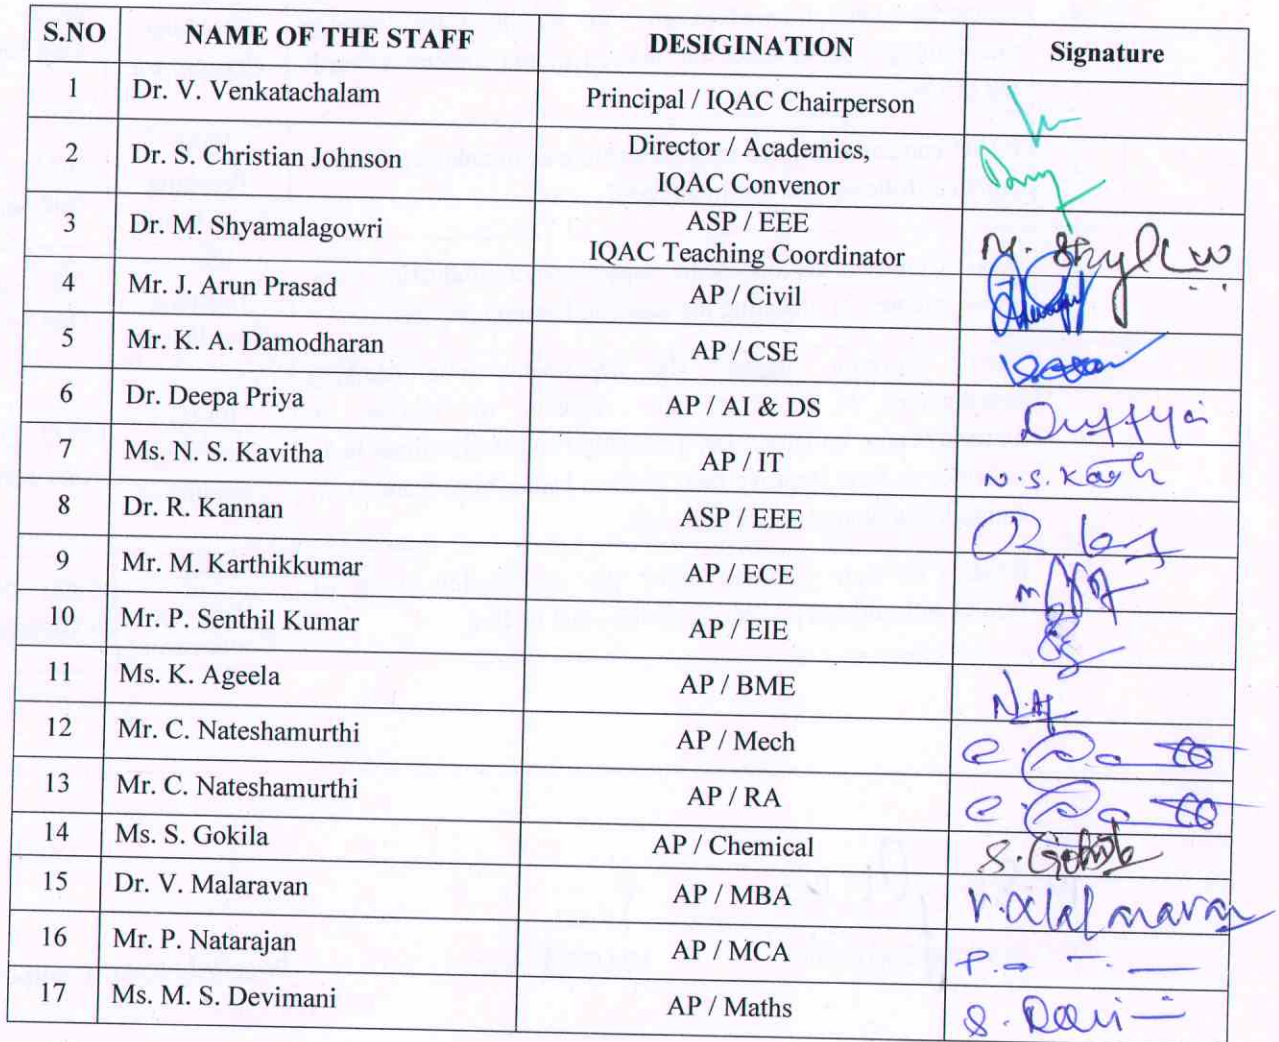 S.NO NAME OF THE STAFF DESIGINATION Signature
1 Dr. V. Venkatachalam Principal / IQAC Chairperson
2 Dr. S. Christian Johnson Director / Academics,
IQAC Convenor
3 Dr. M. Shyamalagowri ASP / EEE
IQAC Teaching Coordinator
4 Mr. J. Arun Prasad AP / Civil
5 Mr. K. A. Damodharan AP / CSE
6 Dr. Deepa Priya AP / AI & DS
7 Ms. N. S. Kavitha AP / IT N.S.
8 Dr. R. Kannan ASP / EEE
9 Mr. M. Karthikkumar AP / ECE
10 Mr. P. Senthil Kumar AP / EIE
11 Ms. K. Ageela AP / BME
12 Mr. C. Nateshamurthi AP / Mech
13 Mr. C. Nateshamurthi AP / RA
14 Ms. S. Gokila AP / Chemical S.
15 Dr. V. Malaravan AP / MBA V.
16 Mr. P. Natarajan AP / MCA P.
17 Ms. M. S. Devimani AP / Maths S.